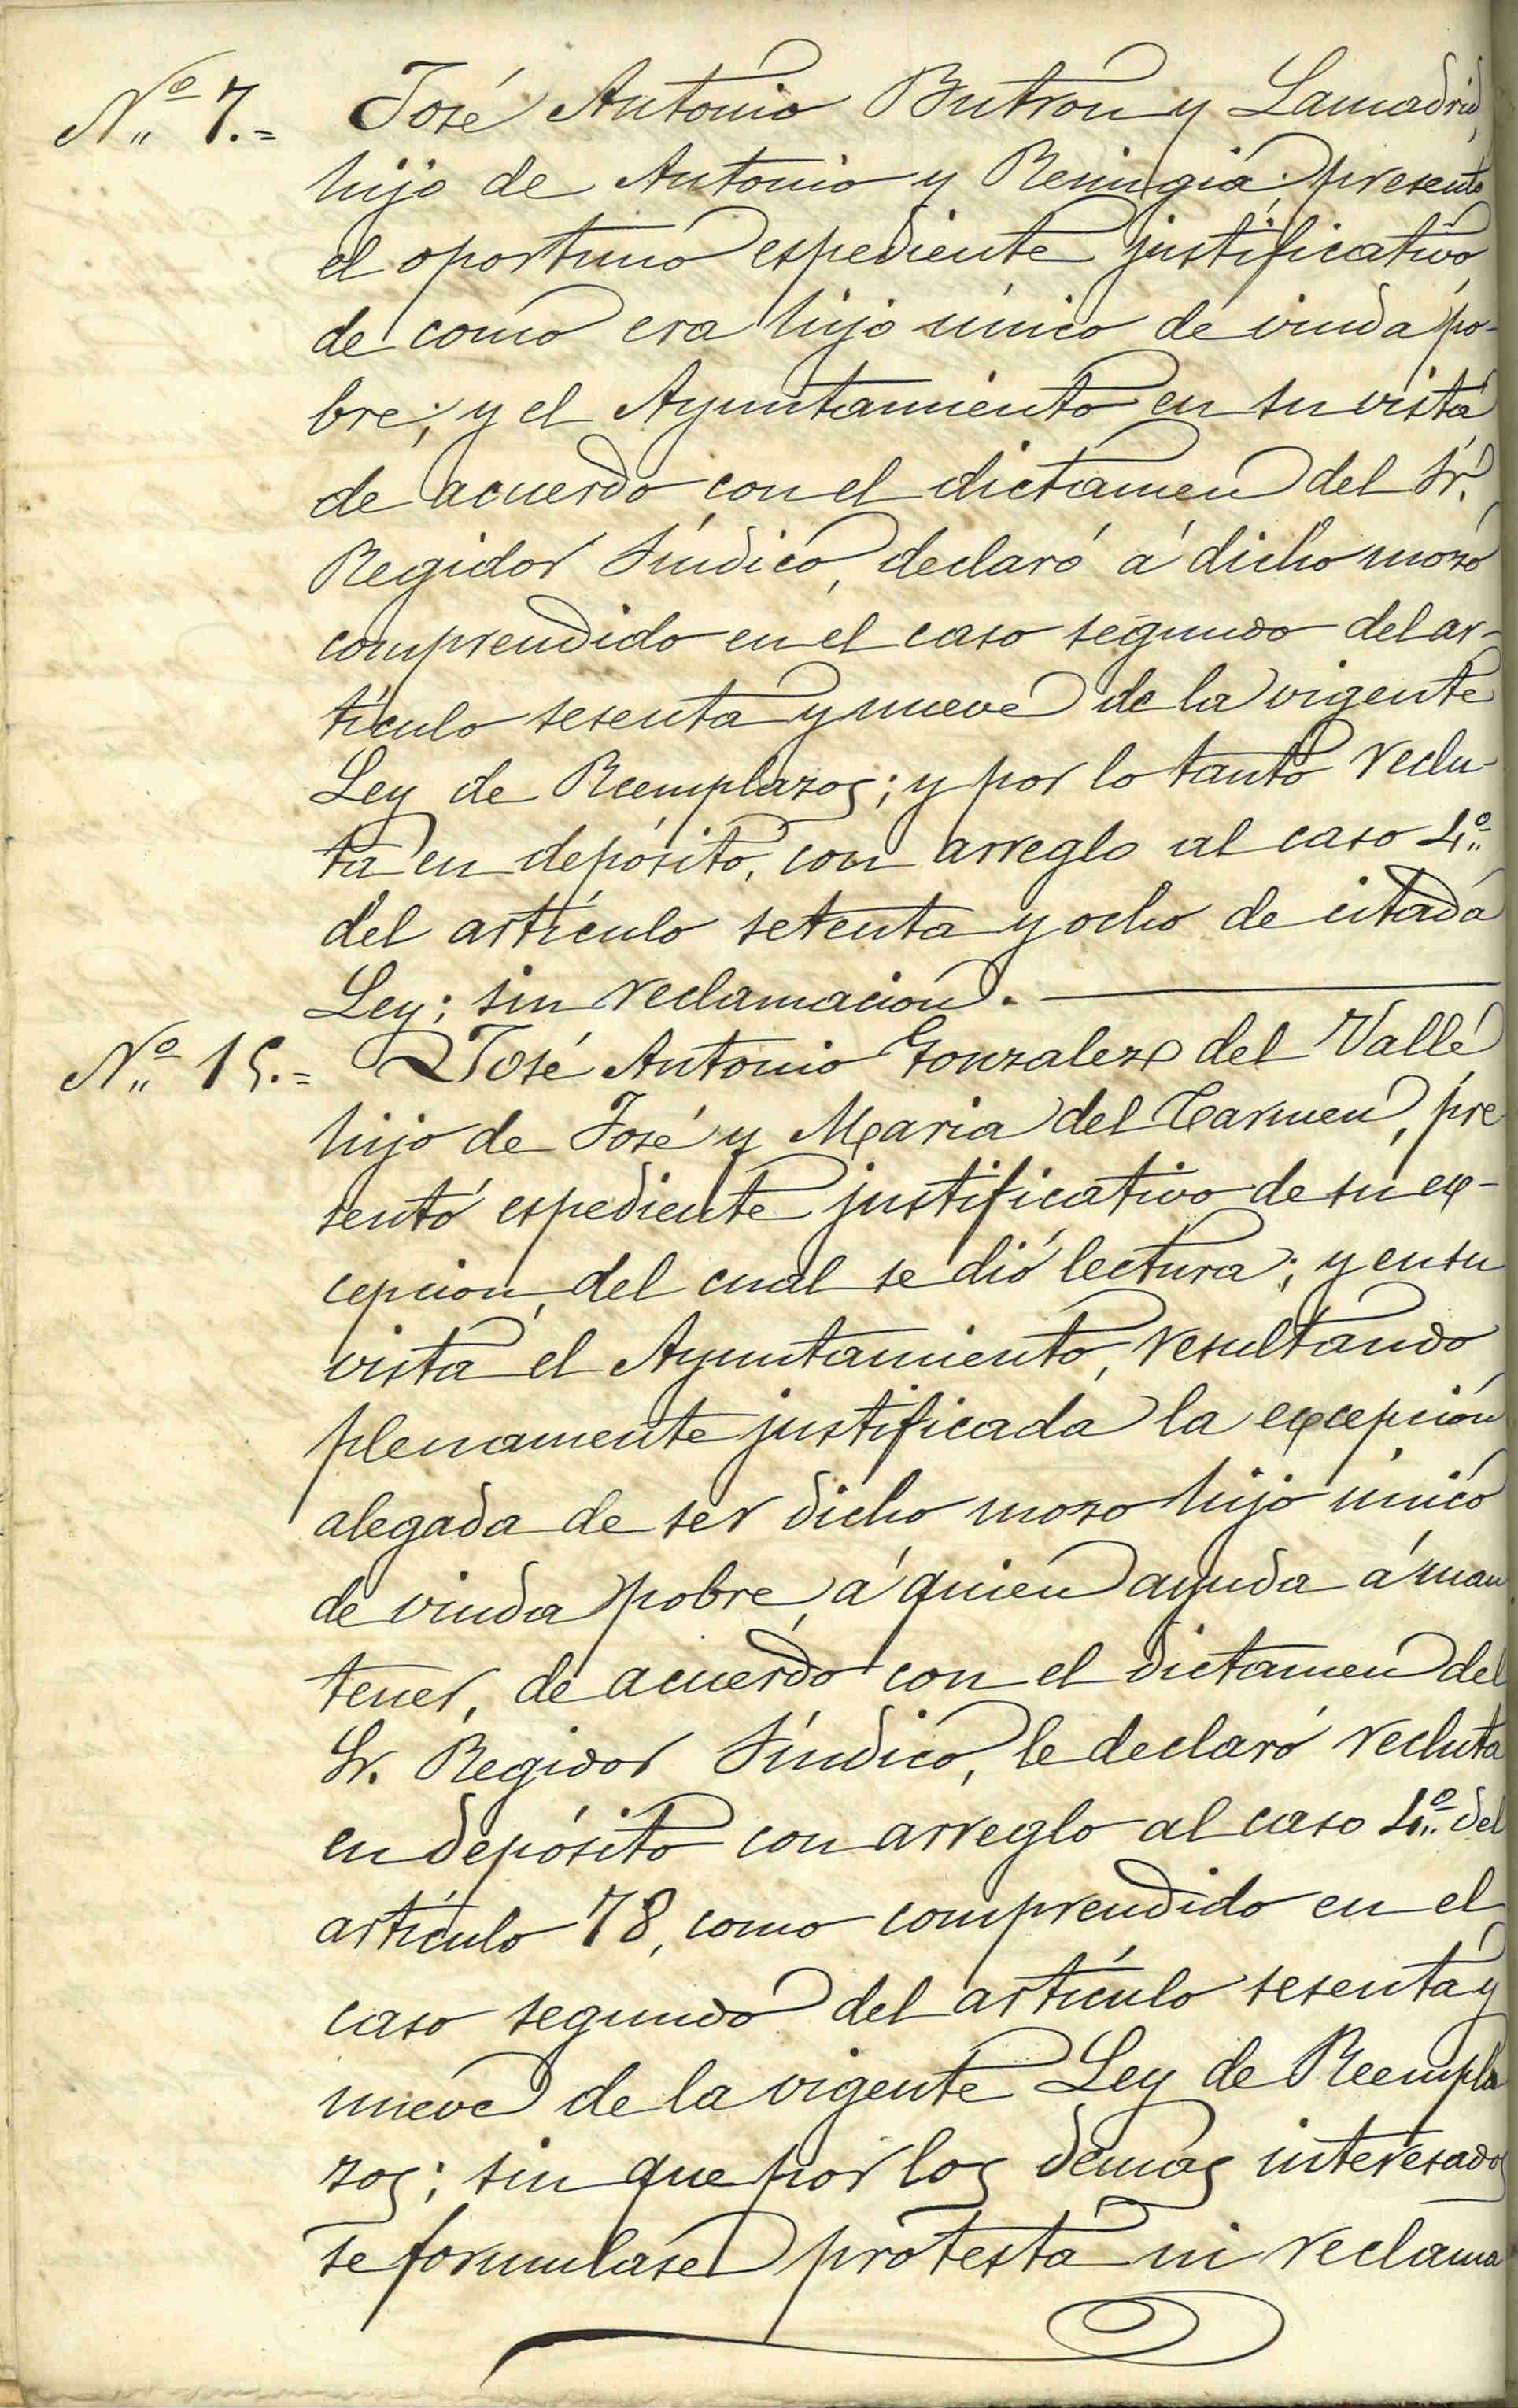 Nº 7.= José Antonio Butron y Lamadrid,
hijo de Antonio y Remigia, presentó
el oportuno espediente justificativo
de como era hijo único de viuda po-
bre; y el Ayuntamiento en su vista
de acuerdo con el dictamen del Sr.
Regidor Síndico, declaró á dicho mozo
comprendido en el caso segundo del ar-
tículo sesenta y nueve de la vigente
Ley de Reemplazos; y por lo tanto reclu-
ta en depósito, con arreglo al caso 4º
del artículo setenta y ocho de citada
Ley; sin reclamacion.
Nº 15.= José Antonio Gonzalez del Valle
hijo de José y Maria del Carmen, pre
sentó espediente justificativo de su ex-
cepcion, del cual se dió lectura; y en su
vista el Ayuntamiento, resultando
plenamente justificada la excepción
alegada de ser dicho mozo hijo único
de viuda pobre, á quien ayuda á man
tener, de acuerdo con el dictamen del
Sr. Regidor Síndico, le declaró recluta
en depósito con arreglo al caso 4º del
artículo 78, como comprendido en el
caso segundo del artículo sesenta y
nueve de la vigente Ley de Reempla
zos; sin que por los demas interesados
se formulase protesta ni reclama